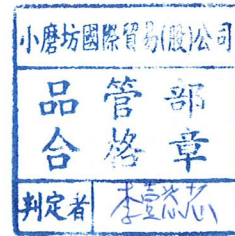 小磨坊國際貿易(股)公司
品管部
合格章
判定者 李